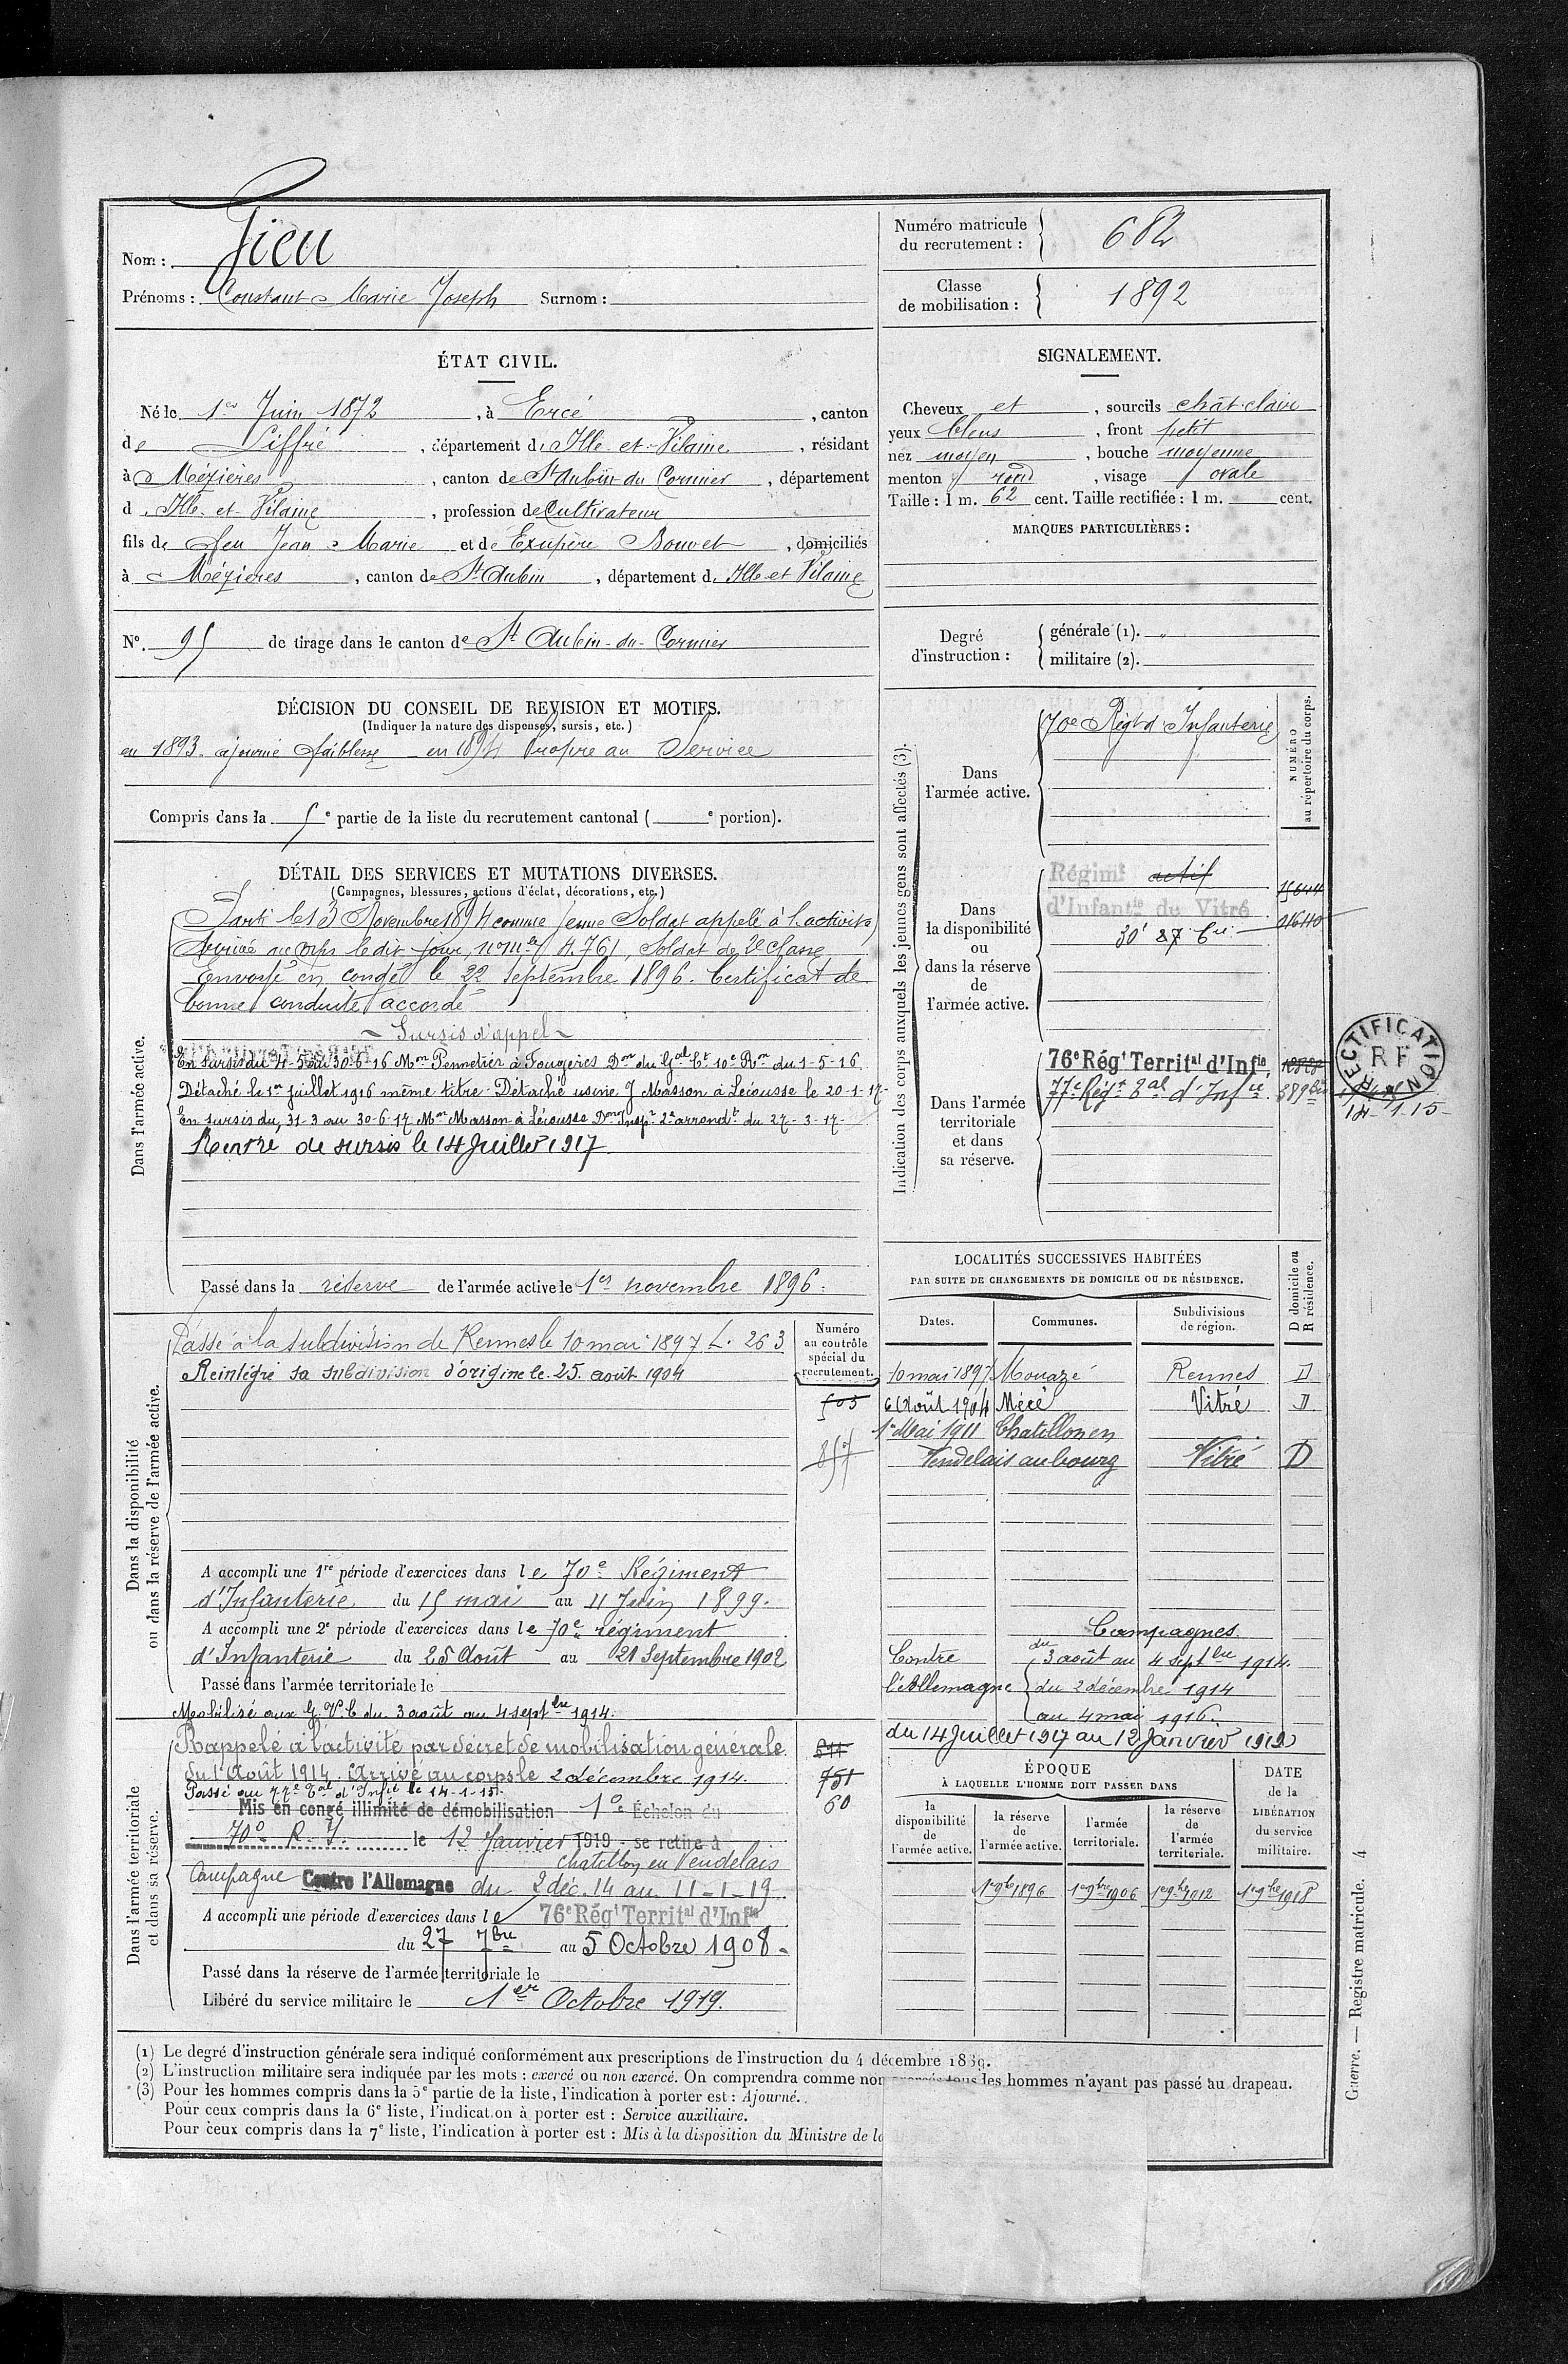 Nom : Gieu
Prénoms : Constant Marie Joseph Surnom :
Numéro matricule
du recrutement : 682
Classe
de mobilisation : 1892
ÉTAT CIVIL.
Né le 1er Juin 1872, à Ercé, canton
de Liffré, département d'Ille-et-Vilaine, résidant
à Mézières, canton de St Aubin du Cormier, département
d'Ille-et-Vilaine, profession de Cultivateur
fils de feu Jean Marie et de Exupère Bouvet, domiciliés
à Mézières, canton de St Aubin, département d'Ille et Vilaine
N° 95 de tirage dans le canton de St Aubin-du-Cormier
SIGNALEMENT.
Cheveux et, sourcils chât-clairs
yeux bleus, front petit
nez moyen, bouche moyenne
menton rond, visage ovale
Taille : 1 m. 62 cent. Taille rectifiée : 1 m. cent.
MARQUES PARTICULIÈRES :
Degré
d'instruction :
générale (1). "
militaire (2).
DÉCISION DU CONSEIL DE REVISION ET MOTIFS.
(Indiquer la nature des dispenses, sursis, etc.)
en 1893 ajourné faiblesse - en 1894 Propre au Service
Compris dans la 5e partie de la liste du recrutement cantonal ( e portion).
DÉTAIL DES SERVICES ET MUTATIONS DIVERSES.
(Campagnes, blessures, actions d'éclat, décorations, etc.)
Dans l'armée active.
Parti le 13 Novembre 1894 comme jeune Soldat appelé à l'activité
Arrivé au Corps le dit jour, no mle 4.761, Soldat de 2e classe
Envoyé en congé le 22 septembre 1896. Certificat de
bonne conduite accordé
- Sursis d'appel -
En sursis du 4-5 au 30-6-16 Mon Pennetier à Fougères Don du Gal Ct 10e Ron du 1-5-16
Détaché le 1er juillet 1916 même titre - Détaché usine J Masson à Lécousse le 20-1-17-
En sursis du 31-3 au 30-6-17 Mon Masson à Lécousse Don Insp. 2e arrondt du 27-3-17-
Rentré de sursis le 14 Juillet 1917
Passé dans la réserve de l'armée active le 1er novembre 1896.
Indication des corps auxquels les jeunes gens sont affectés (3).
NUMÉRO
au répertoire du corps.
Dans
l'armée active.
70e Régt d'Infanterie
Dans
la disponibilité
ou
dans la réserve
de
l'armée active.
Régimt actif
d'Infantie de Vitré
Dans l'armée
territoriale
et dans
sa réserve.
76e Régt Territal d'Infie
77e Régt Tal d'Infie
RECTIFICATION
RF
14-1-15-
Dans la disponibilité
ou dans la réserve de l'armée active.
Passé à la subdivision de Rennes le 10 mai 1897 L. 263
Réintégré sa subdivision d'origine le 25 août 1904
Numéro
au contrôle
spécial du
recrutement.
505
857
A accompli une 1re période d'exercices dans le 70e Régiment
d'Infanterie du 15 mai au 11 Juin 1899.
A accompli une 2e période d'exercices dans le 70e régiment
d'Infanterie du 25 Août au 21 Septembre 1902
Passé dans l'armée territoriale le
Mobilisé aux G.V.C du 3 août au 4 septbre 1914.
LOCALITÉS SUCCESSIVES HABITÉES
PAR SUITE DE CHANGEMENTS DE DOMICILE OU DE RÉSIDENCE.
D domicile ou
R résidence.
Dates. Communes. Subdivisions
de région.
10 mai 1897 Mouazé Rennes D
6 Août 1904 Mécé Vitré D
1er Mai 1911 Chatillon en
Vendelais au bourg Vitré D
Campagnes.
Contre
l'Allemagne
du 3 août au 4 septbre 1914.
du 2 décembre 1914
au 4 mai 1916.
du 14 Juillet 1917 au 12 Janvier 1919
Dans l'armée territoriale
et dans sa réserve.
Rappelé à l'activité par décret de mobilisation générale
du 1er Août 1914. Arrivé au corps le 2 décembre 1914.
Passé au 77e Tal d'Infie le 14-1-15.
Mis en congé illimité de démobilisation 1er Échelon du
70e R.I. le 12 Janvier 1919 - se retire à
Chatillon en Vendelais
Campagne Contre l'Allemagne du 2 déc. 14 au 11-1-19.
A accompli une période d'exercices dans le 76e Régt Territal d'Infie
du 27 7bre au 5 Octobre 1908.
Passé dans la réserve de l'armée territoriale le
Libéré du service militaire le 1er Octobre 1919.
751
60
ÉPOQUE
À LAQUELLE L'HOMME DOIT PASSER DANS
DATE
de la
LIBÉRATION
du service
militaire.
la
disponibilité
de
l'armée active.
la réserve
de
l'armée active.
l'armée
territoriale.
la réserve
de
l'armée
territoriale.
1er 9bre 1896 1er 9bre 1906 1er 9bre 1912 1er 9bre 1918
(1) Le degré d'instruction générale sera indiqué conformément aux prescriptions de l'instruction du 4 décembre 1889.
(2) L'instruction militaire sera indiquée par les mots : exercé ou non exercé. On comprendra comme non exercés tous les hommes n'ayant pas passé au drapeau.
(3) Pour les hommes compris dans la 5e partie de la liste, l'indication à porter est : Ajourné.
Pour ceux compris dans la 6e liste, l'indication à porter est : Service auxiliaire.
Pour ceux compris dans la 7e liste, l'indication à porter est : Mis à la disposition du Ministre de la
Guerre. — Registre matricule. 4